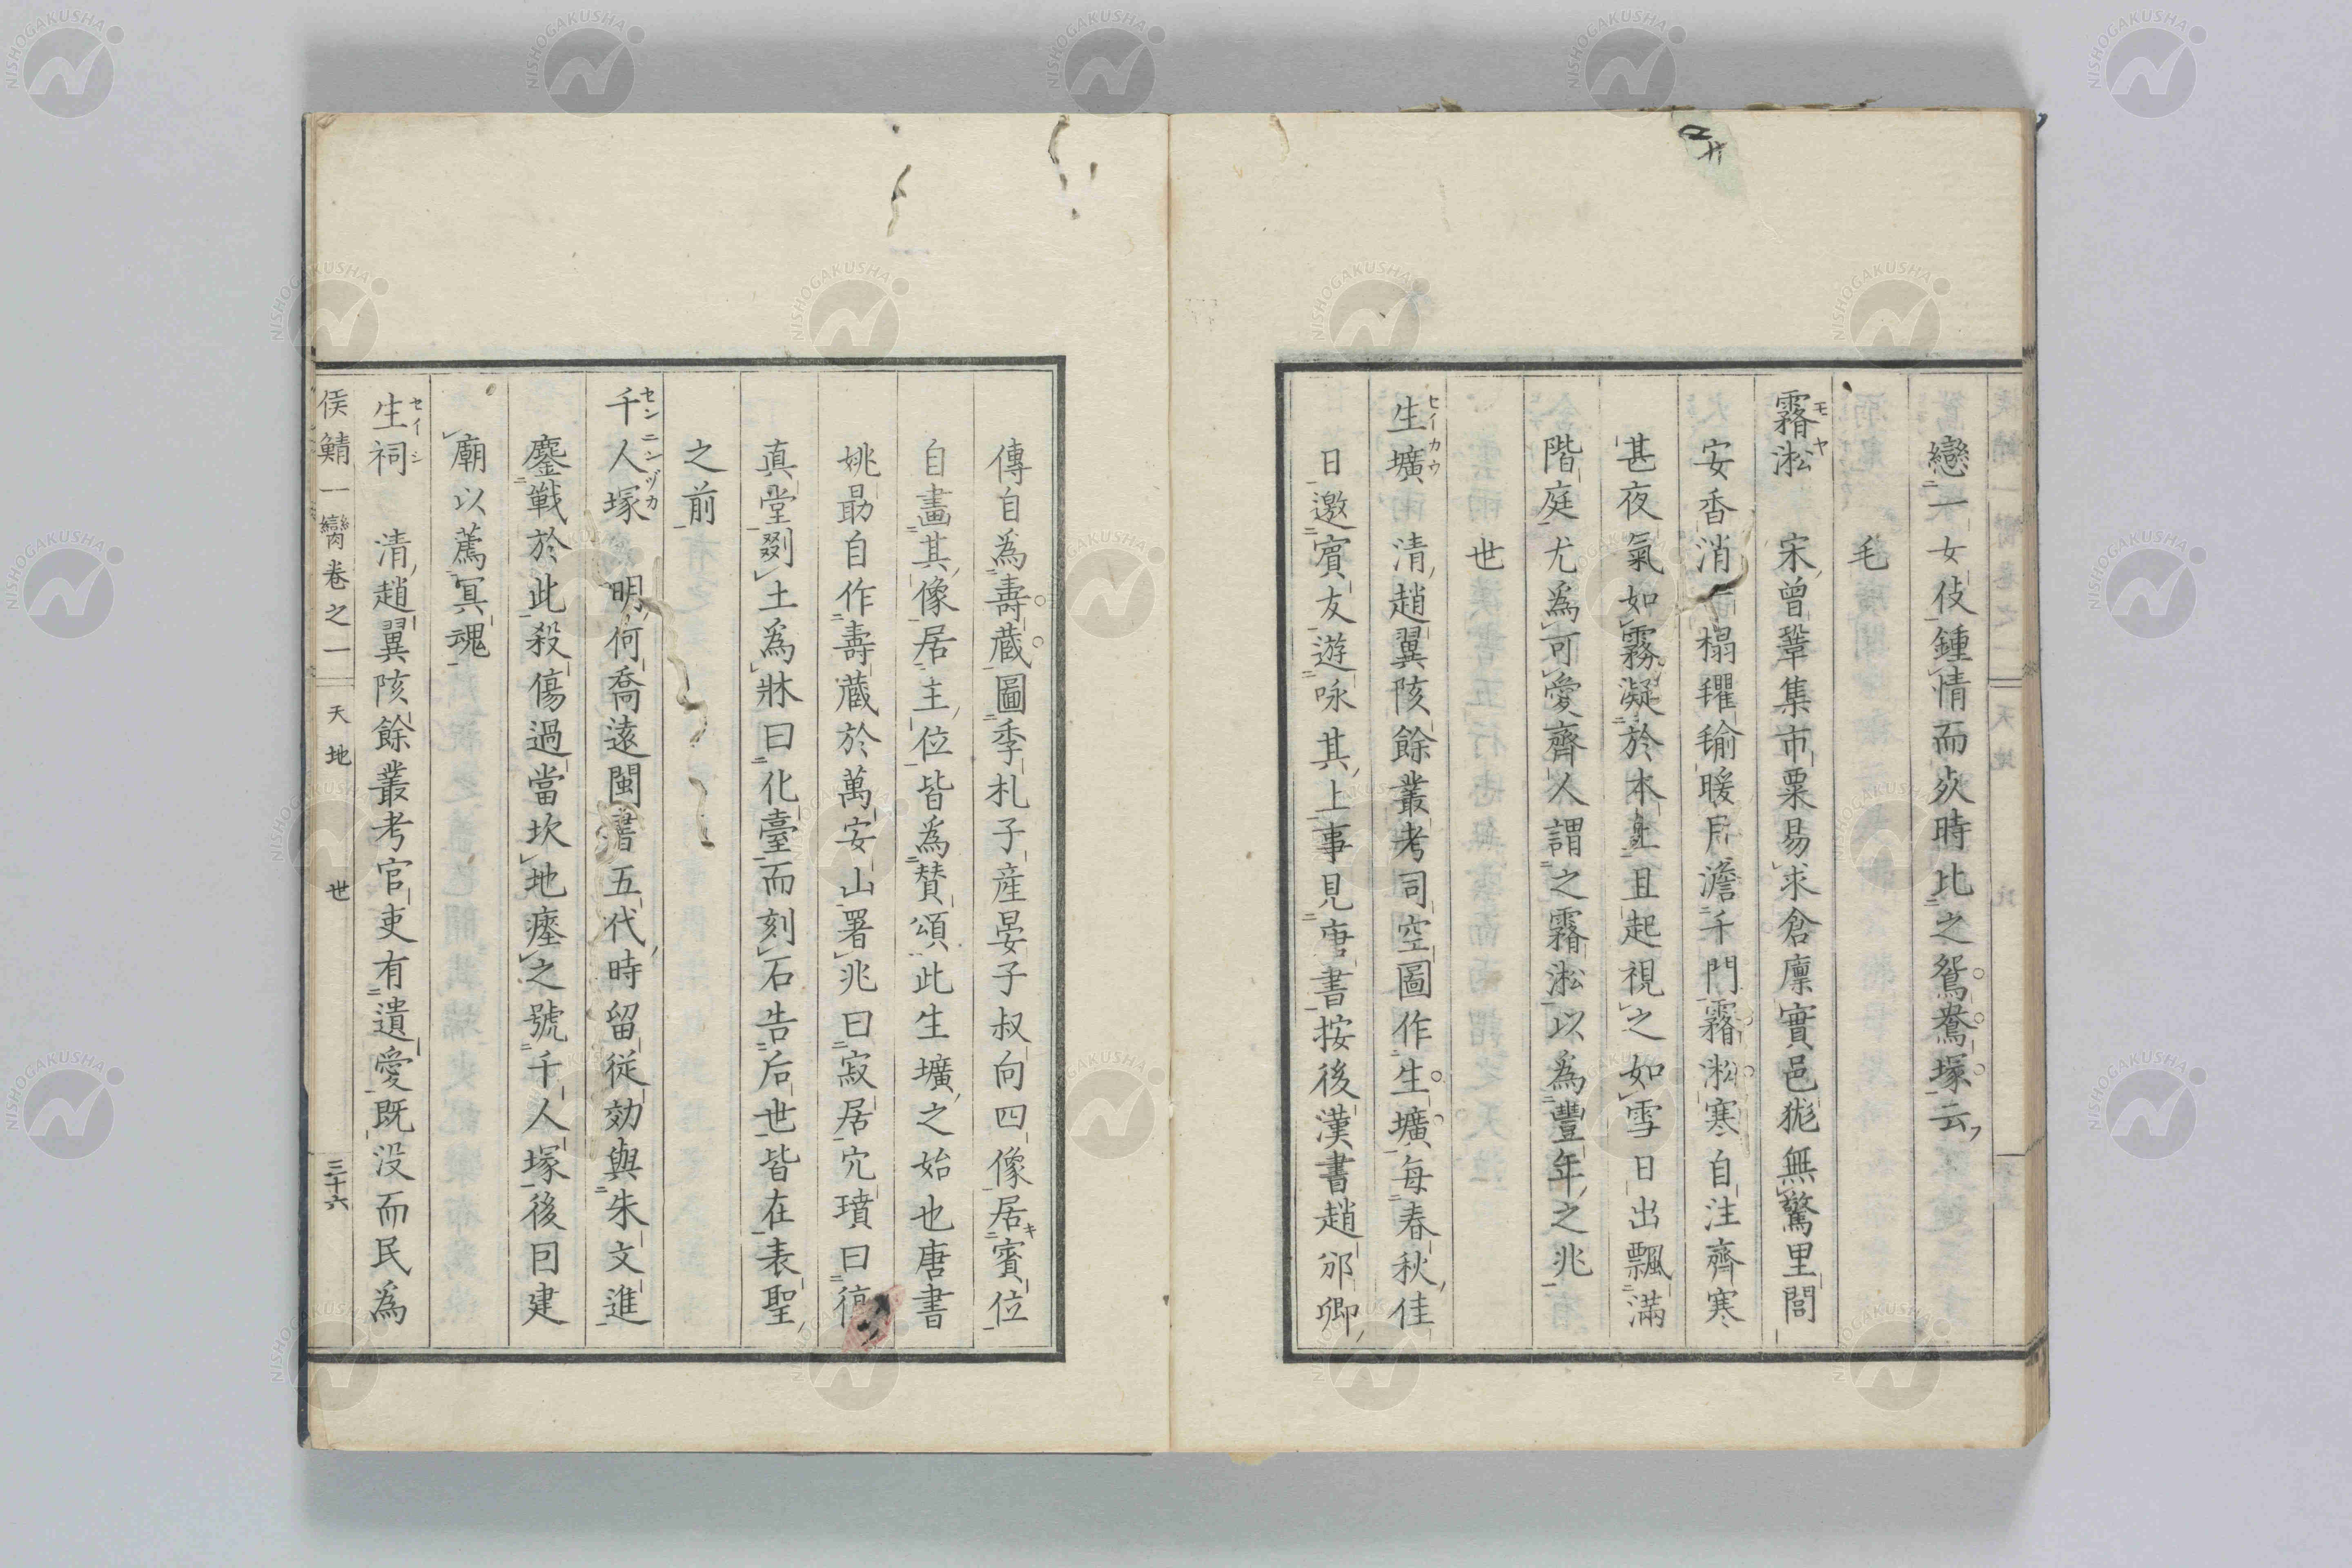 戀一女伎鍾情而死時比之鴛鴦塚云
毛
霧淞 宋曾鞏集市粟易求倉廩實邑尨無驚里閭
安香消一榻氍毹暖月澹千門霧淞寒自注齊寒
甚夜氣如霧凝於木上且起視之如雪日出飄滿
階庭尤為可愛齊人謂之霧淞以為豐年之兆
世
生壙 清趙翼陔餘叢考司空圖作生壙每春秋佳
日邀賓友遊咏其上事見唐書按後漢書趙邠卿
傳自為壽蔵圖季札子産晏子叔向四像居賓位
自畫其像居主位皆為賛頌此生壙之始也唐書
姚勗自作壽蔵於萬安山署兆曰寂居穴墳曰復
真堂剟土為牀曰化臺而刻石告后世皆在表聖
之前
千人塚 明何喬遠閩書五代時留従効與朱文進
鏖戰於此殺傷過當坎地瘞之號千人塚後囙建
廟以薦冥魂
生祠 清趙翼陔餘叢考官吏有遺愛既没而民為
侯鯖一臠巻之一 天地 世 三十六